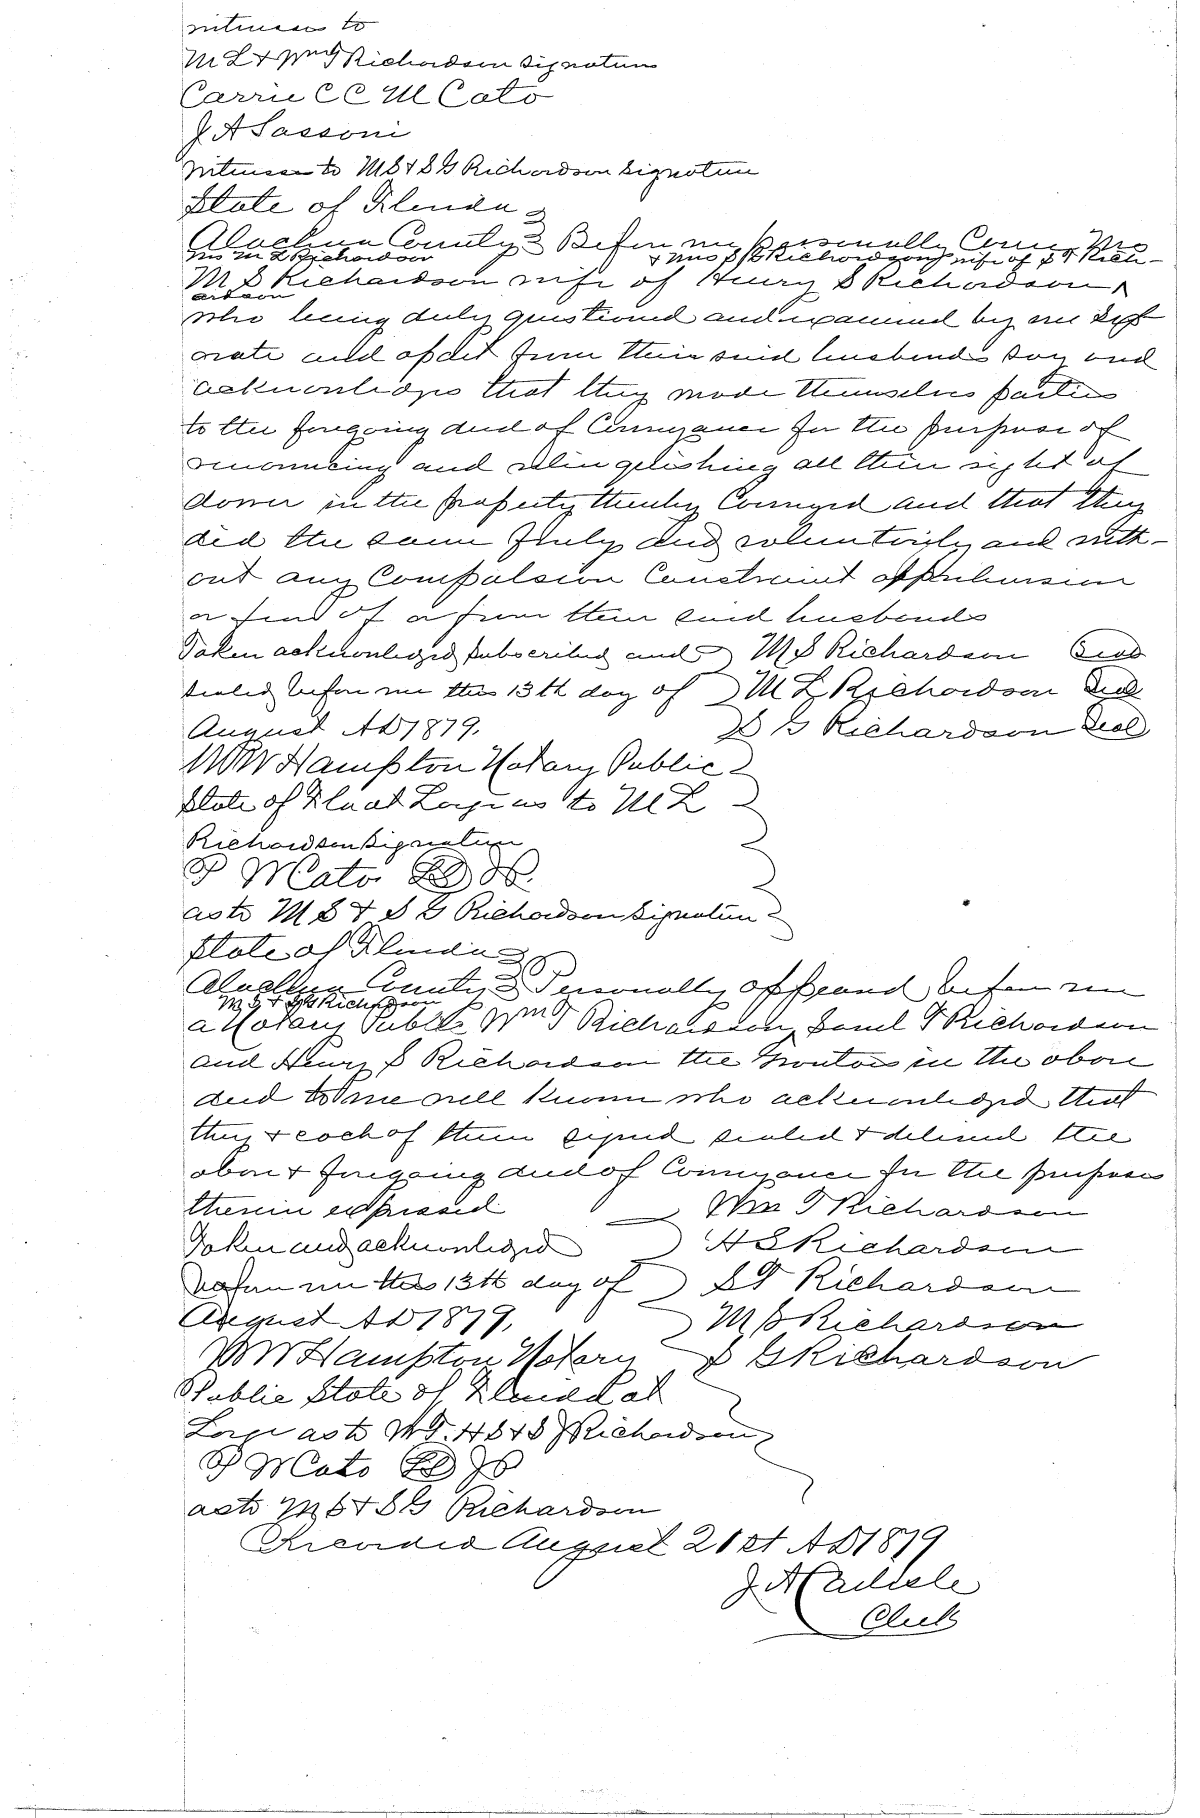 witnesses to
M L & Wm T Richardson signature
Carrie C C M Cato
J A Sassoni
witnesses to M S & S G Richardson signature
State of Florida
Alachua County Before me personally Come Mrs
Mrs M L Richardson & Mrs S G Richardson wife of S T Rich-
M S Richardson wife of Henry S Richardson ^
ardson
who being duly questioned and examined by me sep
arate and apart from their said husbands say and
acknowledges that they made themselves parties
to the foregoing deed of Conveyance for the purpose of
renouncing and relinquishing all their right of
dower in the property thereby Conveyed and that they
did the same freely and voluntarily and with-
out any Compulsion Constraint apprehension
or fear of or from their said husbands
Taken acknowledged subscribed and M S Richardson Seal
sealed before me this 13th day of M L Richardson Seal
August AD 1879. S G Richardson Seal
W W Hampton Notary Public
State of Fla at Large as to M L
Richardson signature
P M Cato
as to M S & S G Richardson signature
State of Florida
Alachua County Personally appeared before me
M S & S G Richardson
a Notary Public Wm T Richardson, Saml T Richardson
and Henry S Richardson the Grantors in the above
deed to me well known who acknowledged that
they & each of them signed sealed & delivered the
above & foregoing deed of Conveyance for the purposes
therein expressed Wm T Richardson
Taken and acknowledged H S Richardson
before me this 13th day of S T Richardson
August AD 1879, M S Richardson
W W Hampton Notary S G Richardson
Public State of Florida at
Large as to W T. H S & S T Richardson
P M Cato
as to M S & S G Richardson
Recorded August 21st AD 1879
J A Carlisle
Clerk